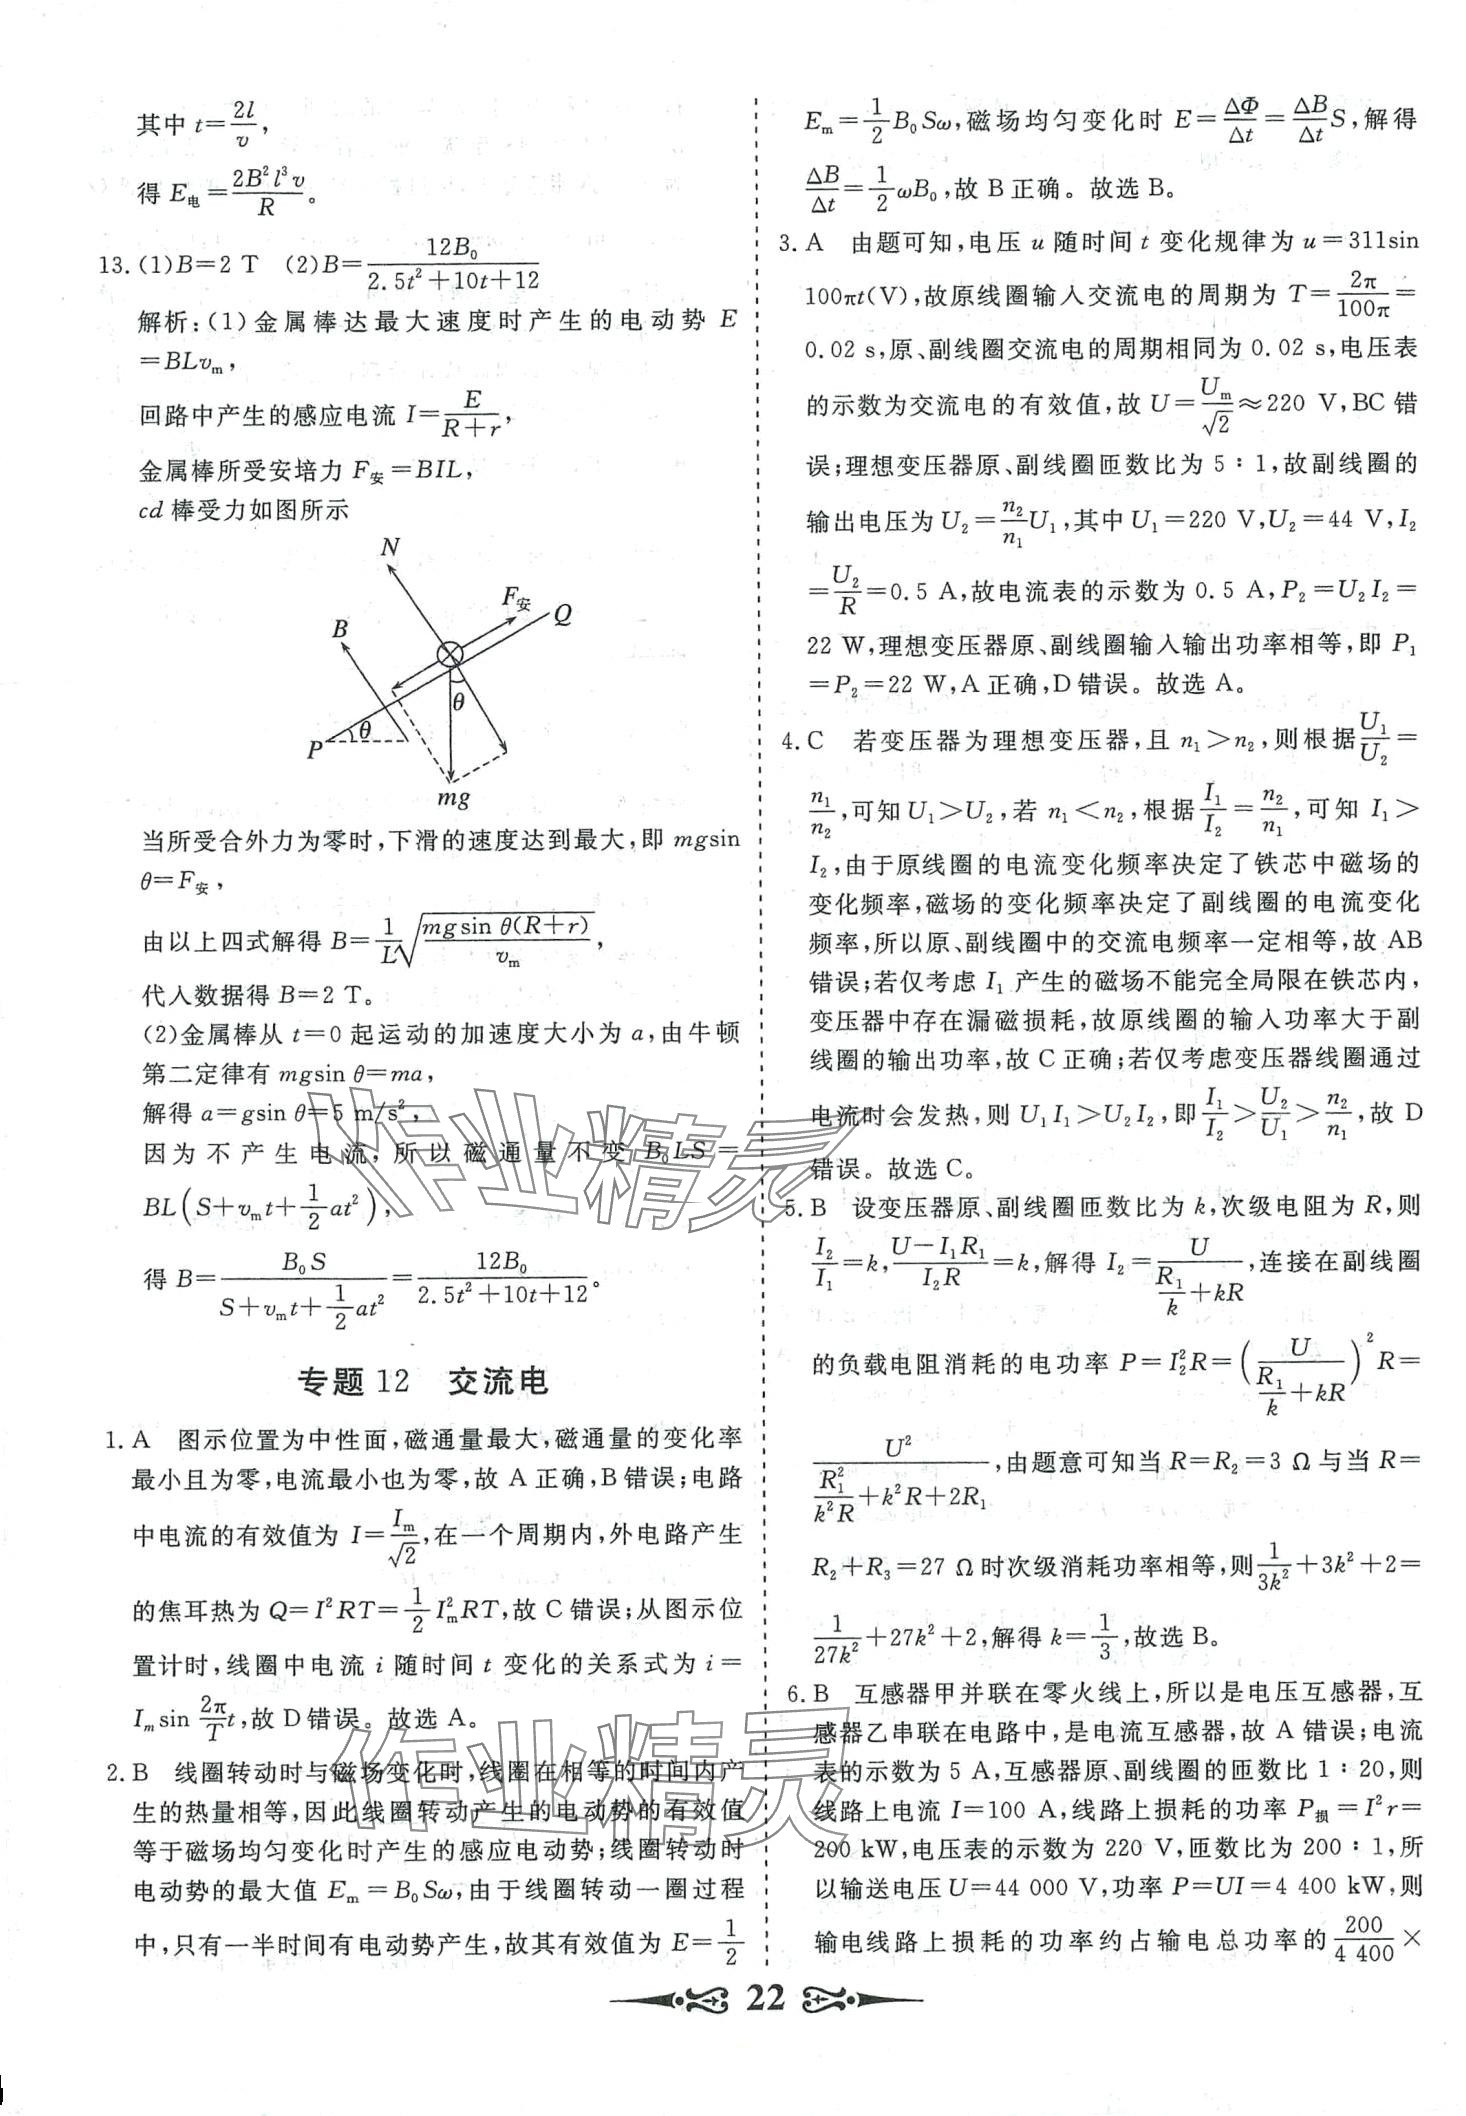 其中 t=2l/v,
得 E电=2B²l³v/R。
13. (1)B=2 T (2)B=12B₀/(2.5t²+10t+12)
解析:(1)金属棒达最大速度时产生的电动势 E
=BLvₘ,
回路中产生的感应电流 I=E/(R+r),
金属棒所受安培力 F安=BIL,
cd 棒受力如图所示
N
F安
Q
B
θ
θ
P
mg
当所受合外力为零时,下滑的速度达到最大,即 mgsin
θ=F安,
由以上四式解得 B=(1/L)√(mgsin θ(R+r)/vₘ),
代入数据得 B=2 T。
(2)金属棒从 t=0 起运动的加速度大小为 a,由牛顿
第二定律有 mgsin θ=ma,
解得 a=gsin θ=5 m/s²,
因为不产生电流,所以磁通量不变 B₀LS=
BL(S+vₘt+(1/2)at²),
得 B=B₀S/(S+vₘt+(1/2)at²)=12B₀/(2.5t²+10t+12)。
专题 12 交流电
1. A 图示位置为中性面,磁通量最大,磁通量的变化率
最小且为零,电流最小也为零,故 A 正确,B 错误;电路
中电流的有效值为 I=Iₘ/√2,在一个周期内,外电路产生
的焦耳热为 Q=I²RT=(1/2)Iₘ²RT,故 C 错误;从图示位
置计时,线圈中电流 i 随时间 t 变化的关系式为 i=
Iₘsin (2π/T)t,故 D 错误。故选 A。
2. B 线圈转动时与磁场变化时,线圈在相等的时间内产
生的热量相等,因此线圈转动产生的电动势的有效值
等于磁场均匀变化时产生的感应电动势;线圈转动时
电动势的最大值 Eₘ=B₀Sω,由于线圈转动一圈过程
中,只有一半时间有电动势产生,故其有效值为 E=1/2
Eₘ=(1/2)B₀Sω,磁场均匀变化时 E=ΔΦ/Δt=(ΔB/Δt)S,解得
ΔB/Δt=(1/2)ωB₀,故 B 正确。故选 B。
3. A 由题可知,电压 u 随时间 t 变化规律为 u=311sin
100πt(V),故原线圈输入交流电的周期为 T=2π/100π=
0.02 s,原、副线圈交流电的周期相同为 0.02 s,电压表
的示数为交流电的有效值,故 U=Uₘ/√2≈220 V,BC 错
误;理想变压器原、副线圈匝数比为 5∶1,故副线圈的
输出电压为 U₂=(n₂/n₁)U₁,其中 U₁=220 V,U₂=44 V,I₂
=U₂/R=0.5 A,故电流表的示数为 0.5 A,P₂=U₂I₂=
22 W,理想变压器原、副线圈输入输出功率相等,即 P₁
=P₂=22 W,A 正确,D 错误。故选 A。
4. C 若变压器为理想变压器,且 n₁>n₂,则根据U₁/U₂=
n₁/n₂,可知 U₁>U₂,若 n₁<n₂,根据I₁/I₂=n₂/n₁,可知 I₁>
I₂,由于原线圈的电流变化频率决定了铁芯中磁场的
变化频率,磁场的变化频率决定了副线圈的电流变化
频率,所以原、副线圈中的交流电频率一定相等,故 AB
错误;若仅考虑 I₁ 产生的磁场不能完全局限在铁芯内,
变压器中存在漏磁损耗,故原线圈的输入功率大于副
线圈的输出功率,故 C 正确;若仅考虑变压器线圈通过
电流时会发热,则 U₁I₁>U₂I₂,即I₁/I₂>U₂/U₁>n₂/n₁,故 D
错误。故选 C。
5. B 设变压器原、副线圈匝数比为 k,次级电阻为 R,则
I₂/I₁=k,(U−I₁R₁)/(I₂R)=k,解得 I₂=U/(R₁/k+kR),连接在副线圈
的负载电阻消耗的电功率 P=I₂²R=(U/(R₁/k+kR))²R=
U²/(R₁²/(k²R)+k²R+2R₁),由题意可知当 R=R₂=3 Ω 与当 R=
R₂+R₃=27 Ω 时次级消耗功率相等,则1/(3k²)+3k²+2=
1/(27k²)+27k²+2,解得 k=1/3,故选 B。
6. B 互感器甲并联在零火线上,所以是电压互感器,互
感器乙串联在电路中,是电流互感器,故 A 错误;电流
表的示数为 5 A,互感器原、副线圈的匝数比 1∶20,则
线路上电流 I=100 A,线路上损耗的功率 P损=I²r=
200 kW,电压表的示数为 220 V,匝数比为 200∶1,所
以输送电压 U=44 000 V,功率 P=UI=4 400 kW,则
输电线路上损耗的功率约占输电总功率的 200/4 400×
22
作业精灵
作业精灵